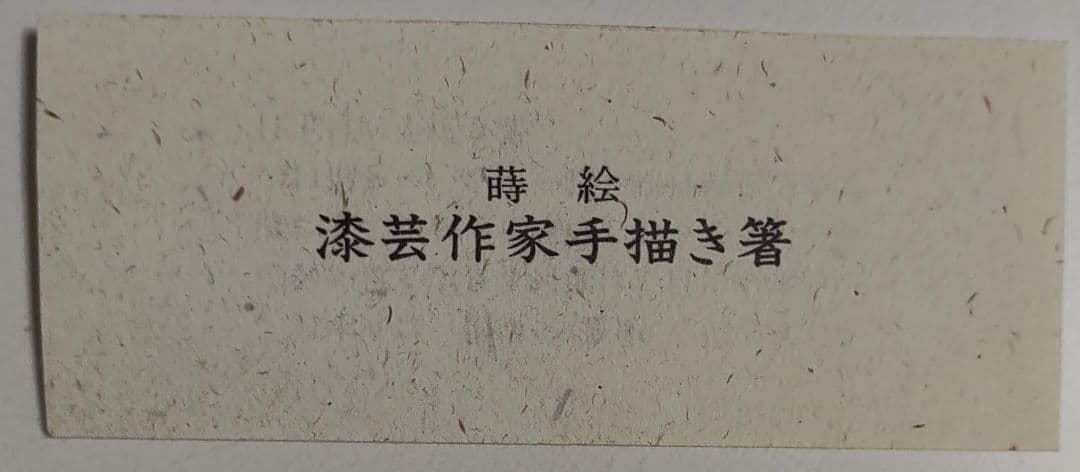 蒔絵
漆芸作家手描き箸